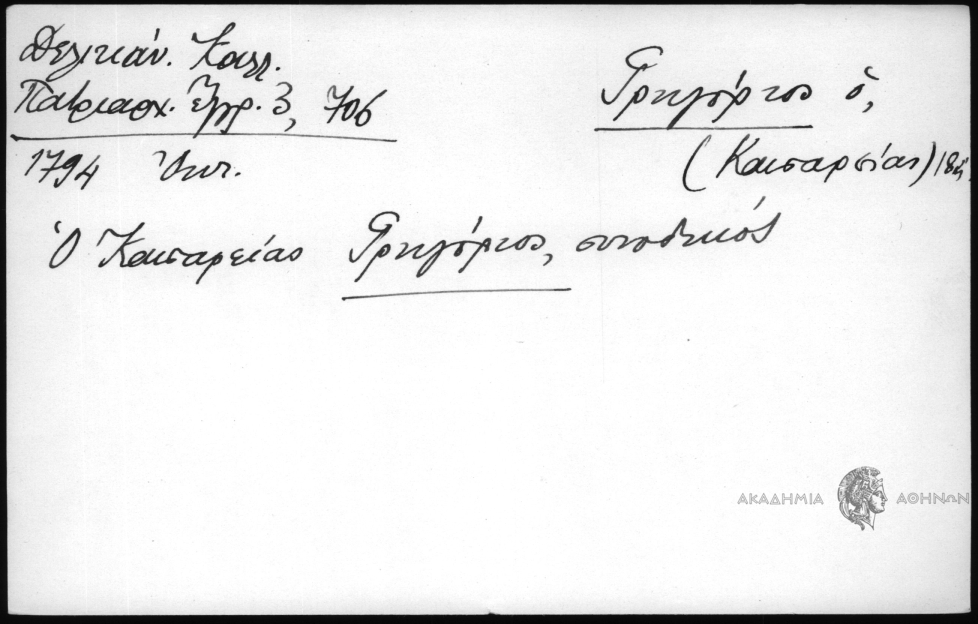 Δελικάν. Καλλ.
Πατριαρχ. Ἔγγρ. 3, 706
1794 Ὀκτ.
Γρηγόριος ὁ,
(Καισαρείας) 18
Ὁ Καισαρείας Γρηγόριος, συνοδικός
ΑΚΑΔΗΜΙΑ ΑΘΗΝΩΝ